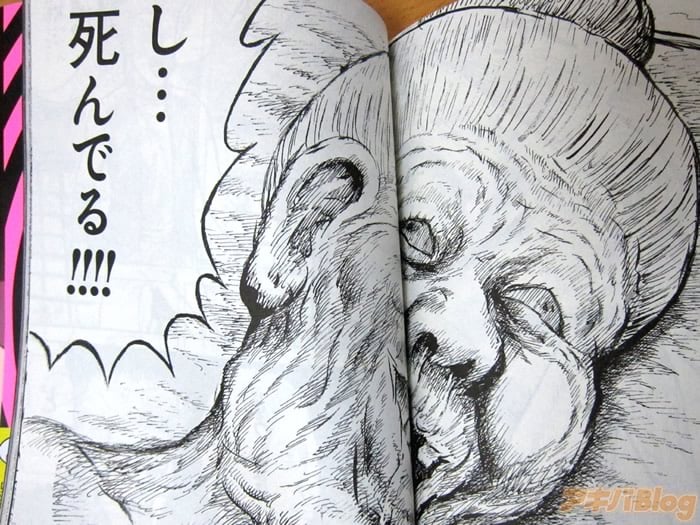 し…
死んでる!!!!
アキバBlog